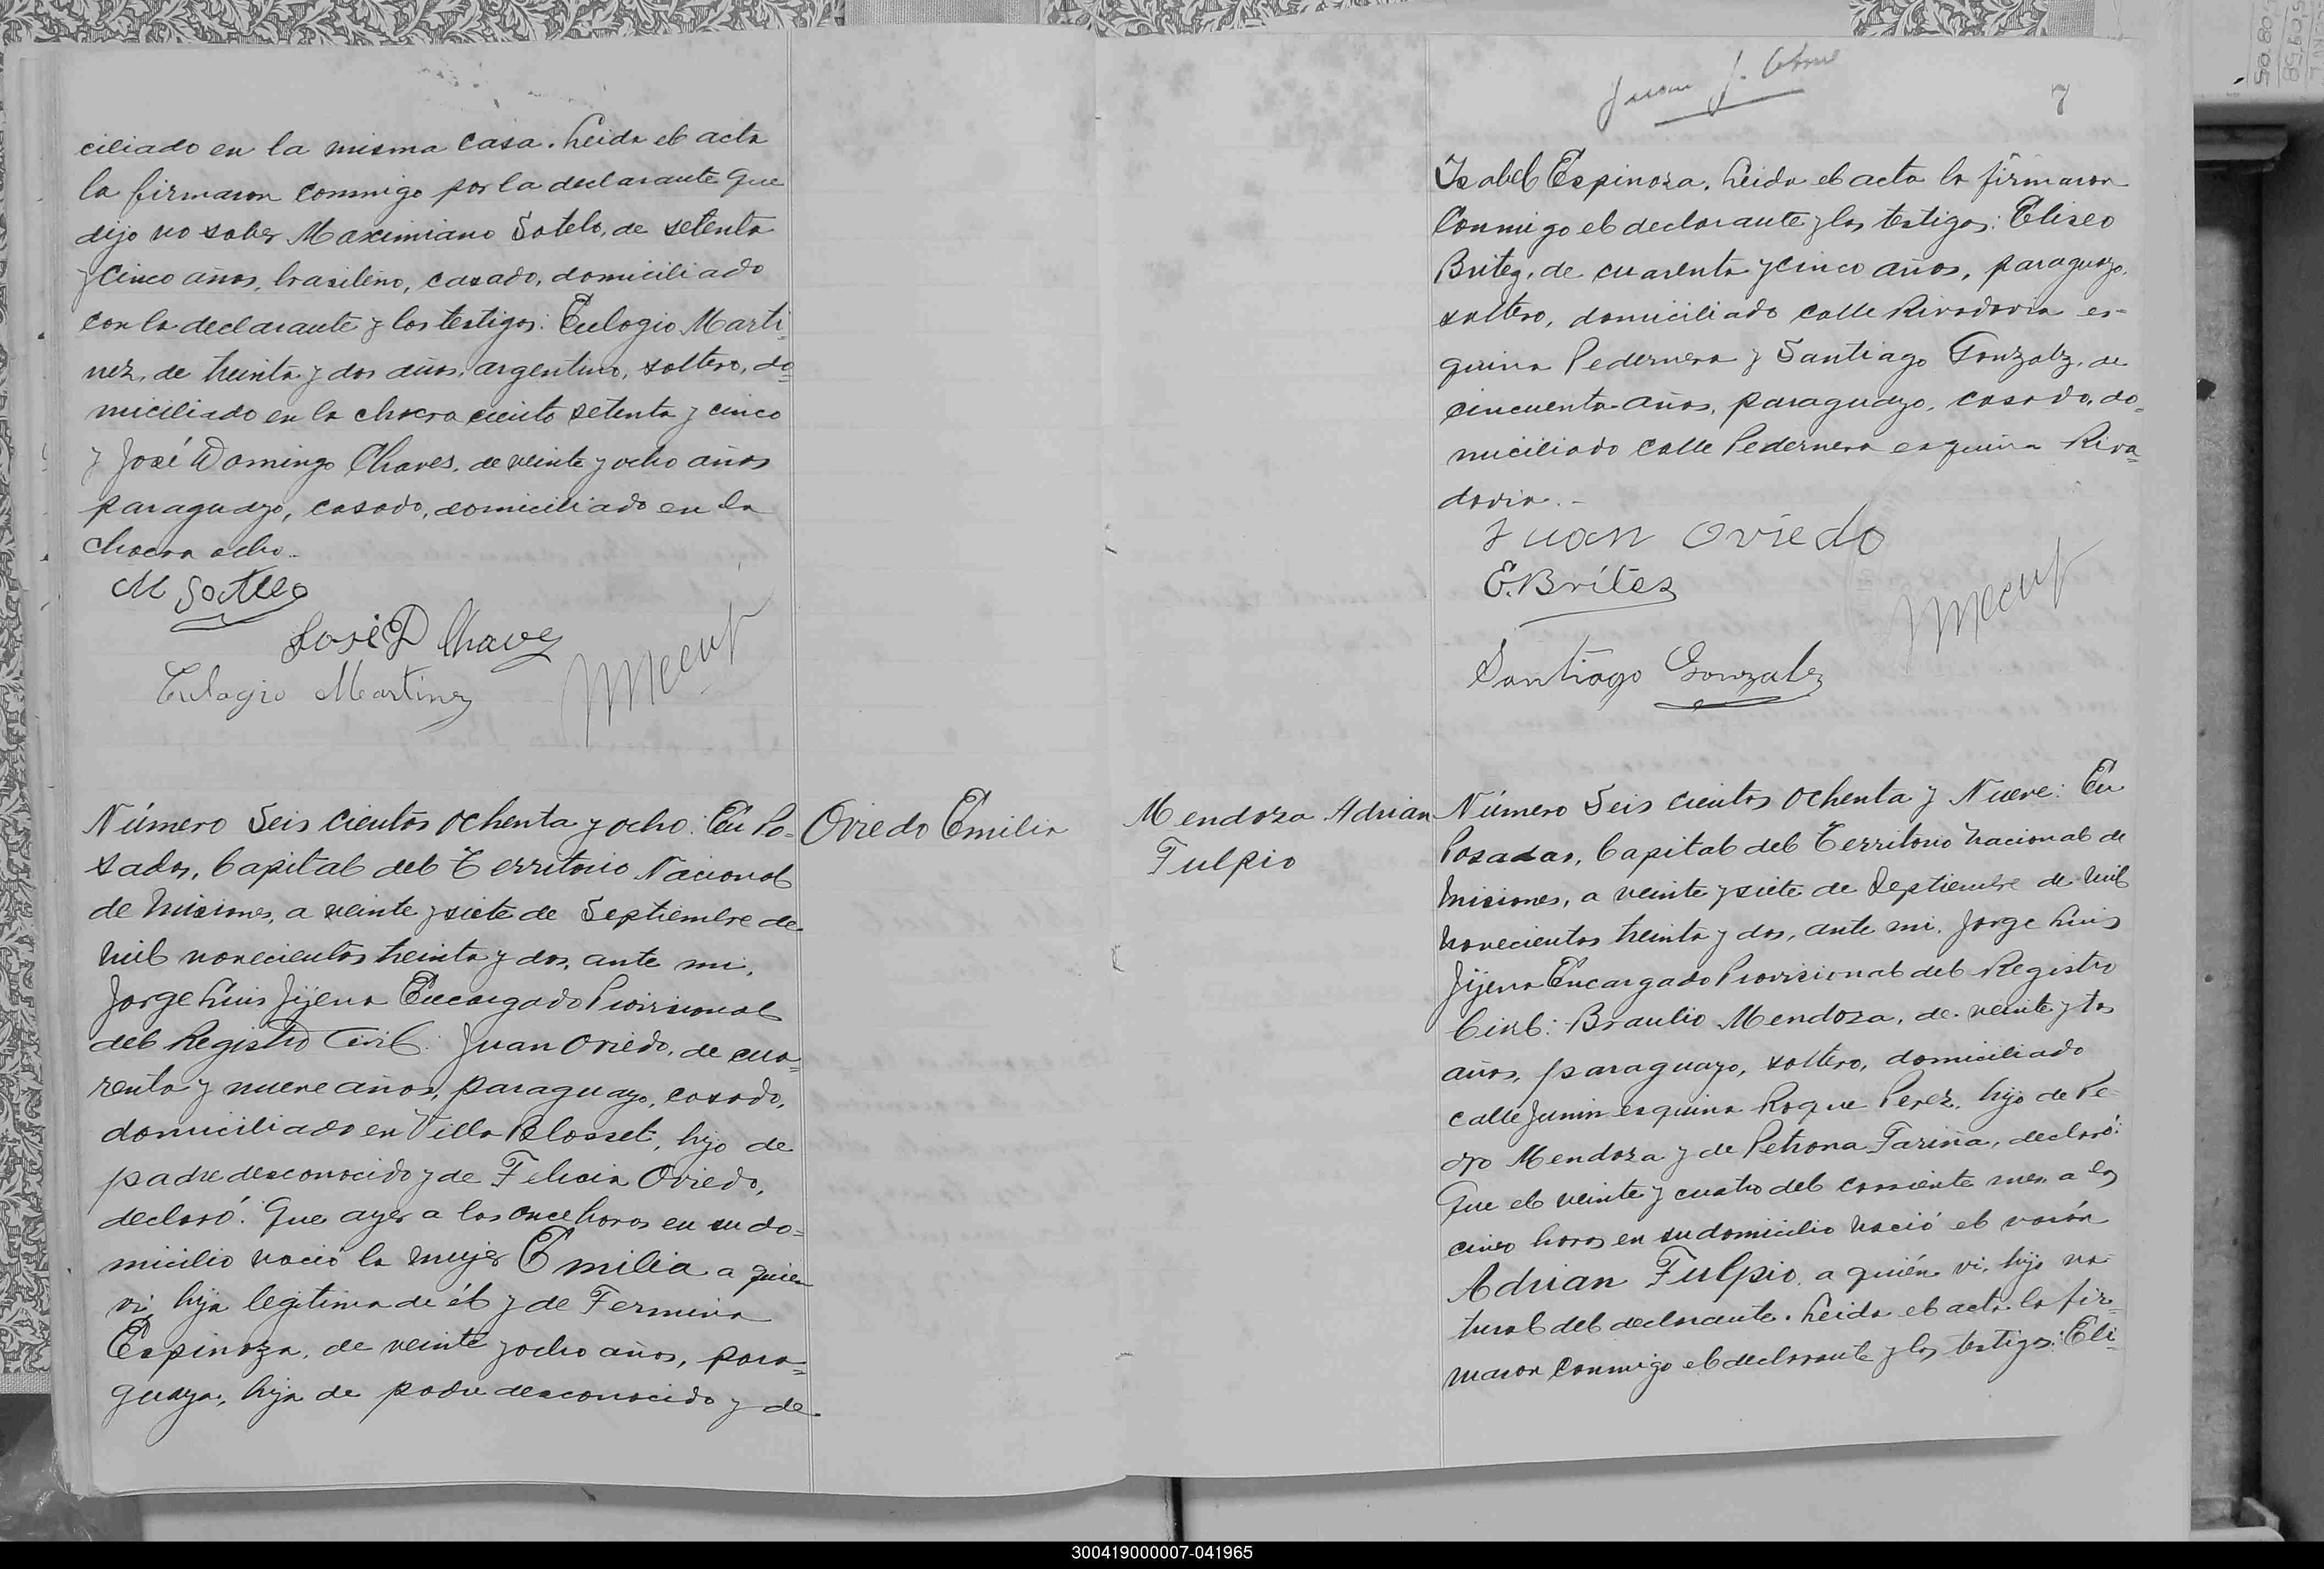 ciliado en la misma casa. Leida el acta
la firmaron conmigo por la declarante que
dijo no saber Maximiano Sotelo, de setenta
y cinco años, brasileño, casado, domiciliado
con la declarante y los testigos: Eulogio Marti-
nez, de treinta y dos años, argentino, soltero, do=
miciliado en la chacra ciento setenta y cinco
y José Domingo Chaves, de veinte y ocho años
paraguayo, casado, domiciliado en la
chacra ocho.-
M Sotelo
José D Chavez
Eulogio Martinez
Número Seis cientos ochenta y ocho: En Po-
sadas, Capital del Territorio Nacional
de Misiones, a veinte y siete de Septiembre de
mil novecientos treinta y dos, ante mi,
Jorge Luis Jijena Encargado Provisional
del Registro Civil: Juan Oviedo, de cua=
renta y nueve años, paraguayo, casado,
domiciliado en Villa Blosset, hijo de
padre desconocido y de Felicia Oviedo,
declaró: Que ayer a las once horas en su do=
micilio nació la mujer Emilia a quien
vi, hija legitima de él y de Fermina
Espinoza, de veinte y ocho años, para=
guaya, hija de padre desconocido y de
Oviedo Emilia
Juan J.
7
Isabel Espinoza. Leida el acta la firmaron
conmigo el declarante y los testigos: Eliseo
Britez, de cuarenta y cinco años, paraguayo,
soltero, domiciliado calle Rivadavia es-
quina Pedernera y Santiago Gonzalez, de
cincuenta años, paraguayo, casado, do=
miciliado calle Pedernera esquina Riva=
davia.-
Juan Oviedo
E. Britez
Santiago Gonzalez
Mendoza Adrian
Fulpio
Número Seis cientos ochenta y Nueve: En
Posadas, Capital del Territorio Nacional de
Misiones, a veinte y siete de Septiembre de mil
novecientos treinta y dos, ante mi, Jorge Luis
Jijena Encargado Provisional del Registro
Civil: Braulio Mendoza, de veinte y tres
años, paraguayo, soltero, domiciliado
calle Junin esquina Roque Perez, hijo de Pe-
dro Mendoza y de Petrona Fariña, declaró:
Que el veinte y cuatro del corriente mes a las
cinco horas en su domicilio nació el varón
Adrian Fulpio, a quién vi, hijo na-
tural del declarante. Leida el acta la fir=
maron conmigo el declarante y los testigos: Eli-
300419000007-041965